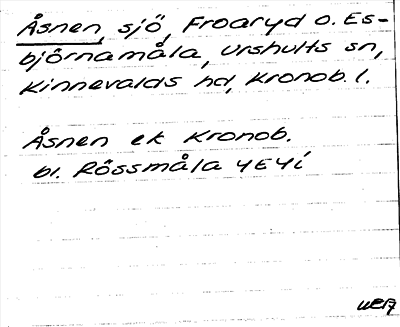 Åsnen, sjö, Froaryd o. Es-
björnamåla, Urshults sn,
Kinnevalds hd, Kronob. l.
Åsnen ek Kronob.
bl. Rössmåla 4E4i